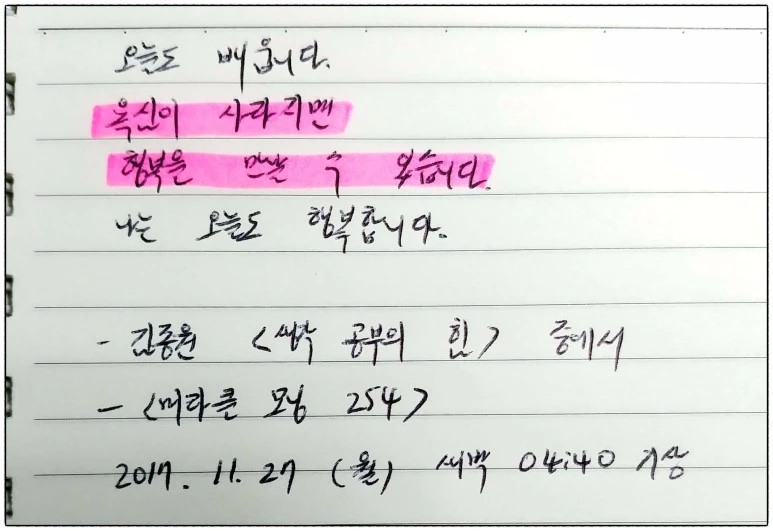 오늘도 배웁니다.
욕심이 사라지면
행복을 만날 수 있습니다.
나는 오늘도 행복합니다.
- 김종원 <생각 공부의 힘> 중에서
- <미라클 모닝 254>
2017. 11. 27 (월) 새벽 04:40 기상